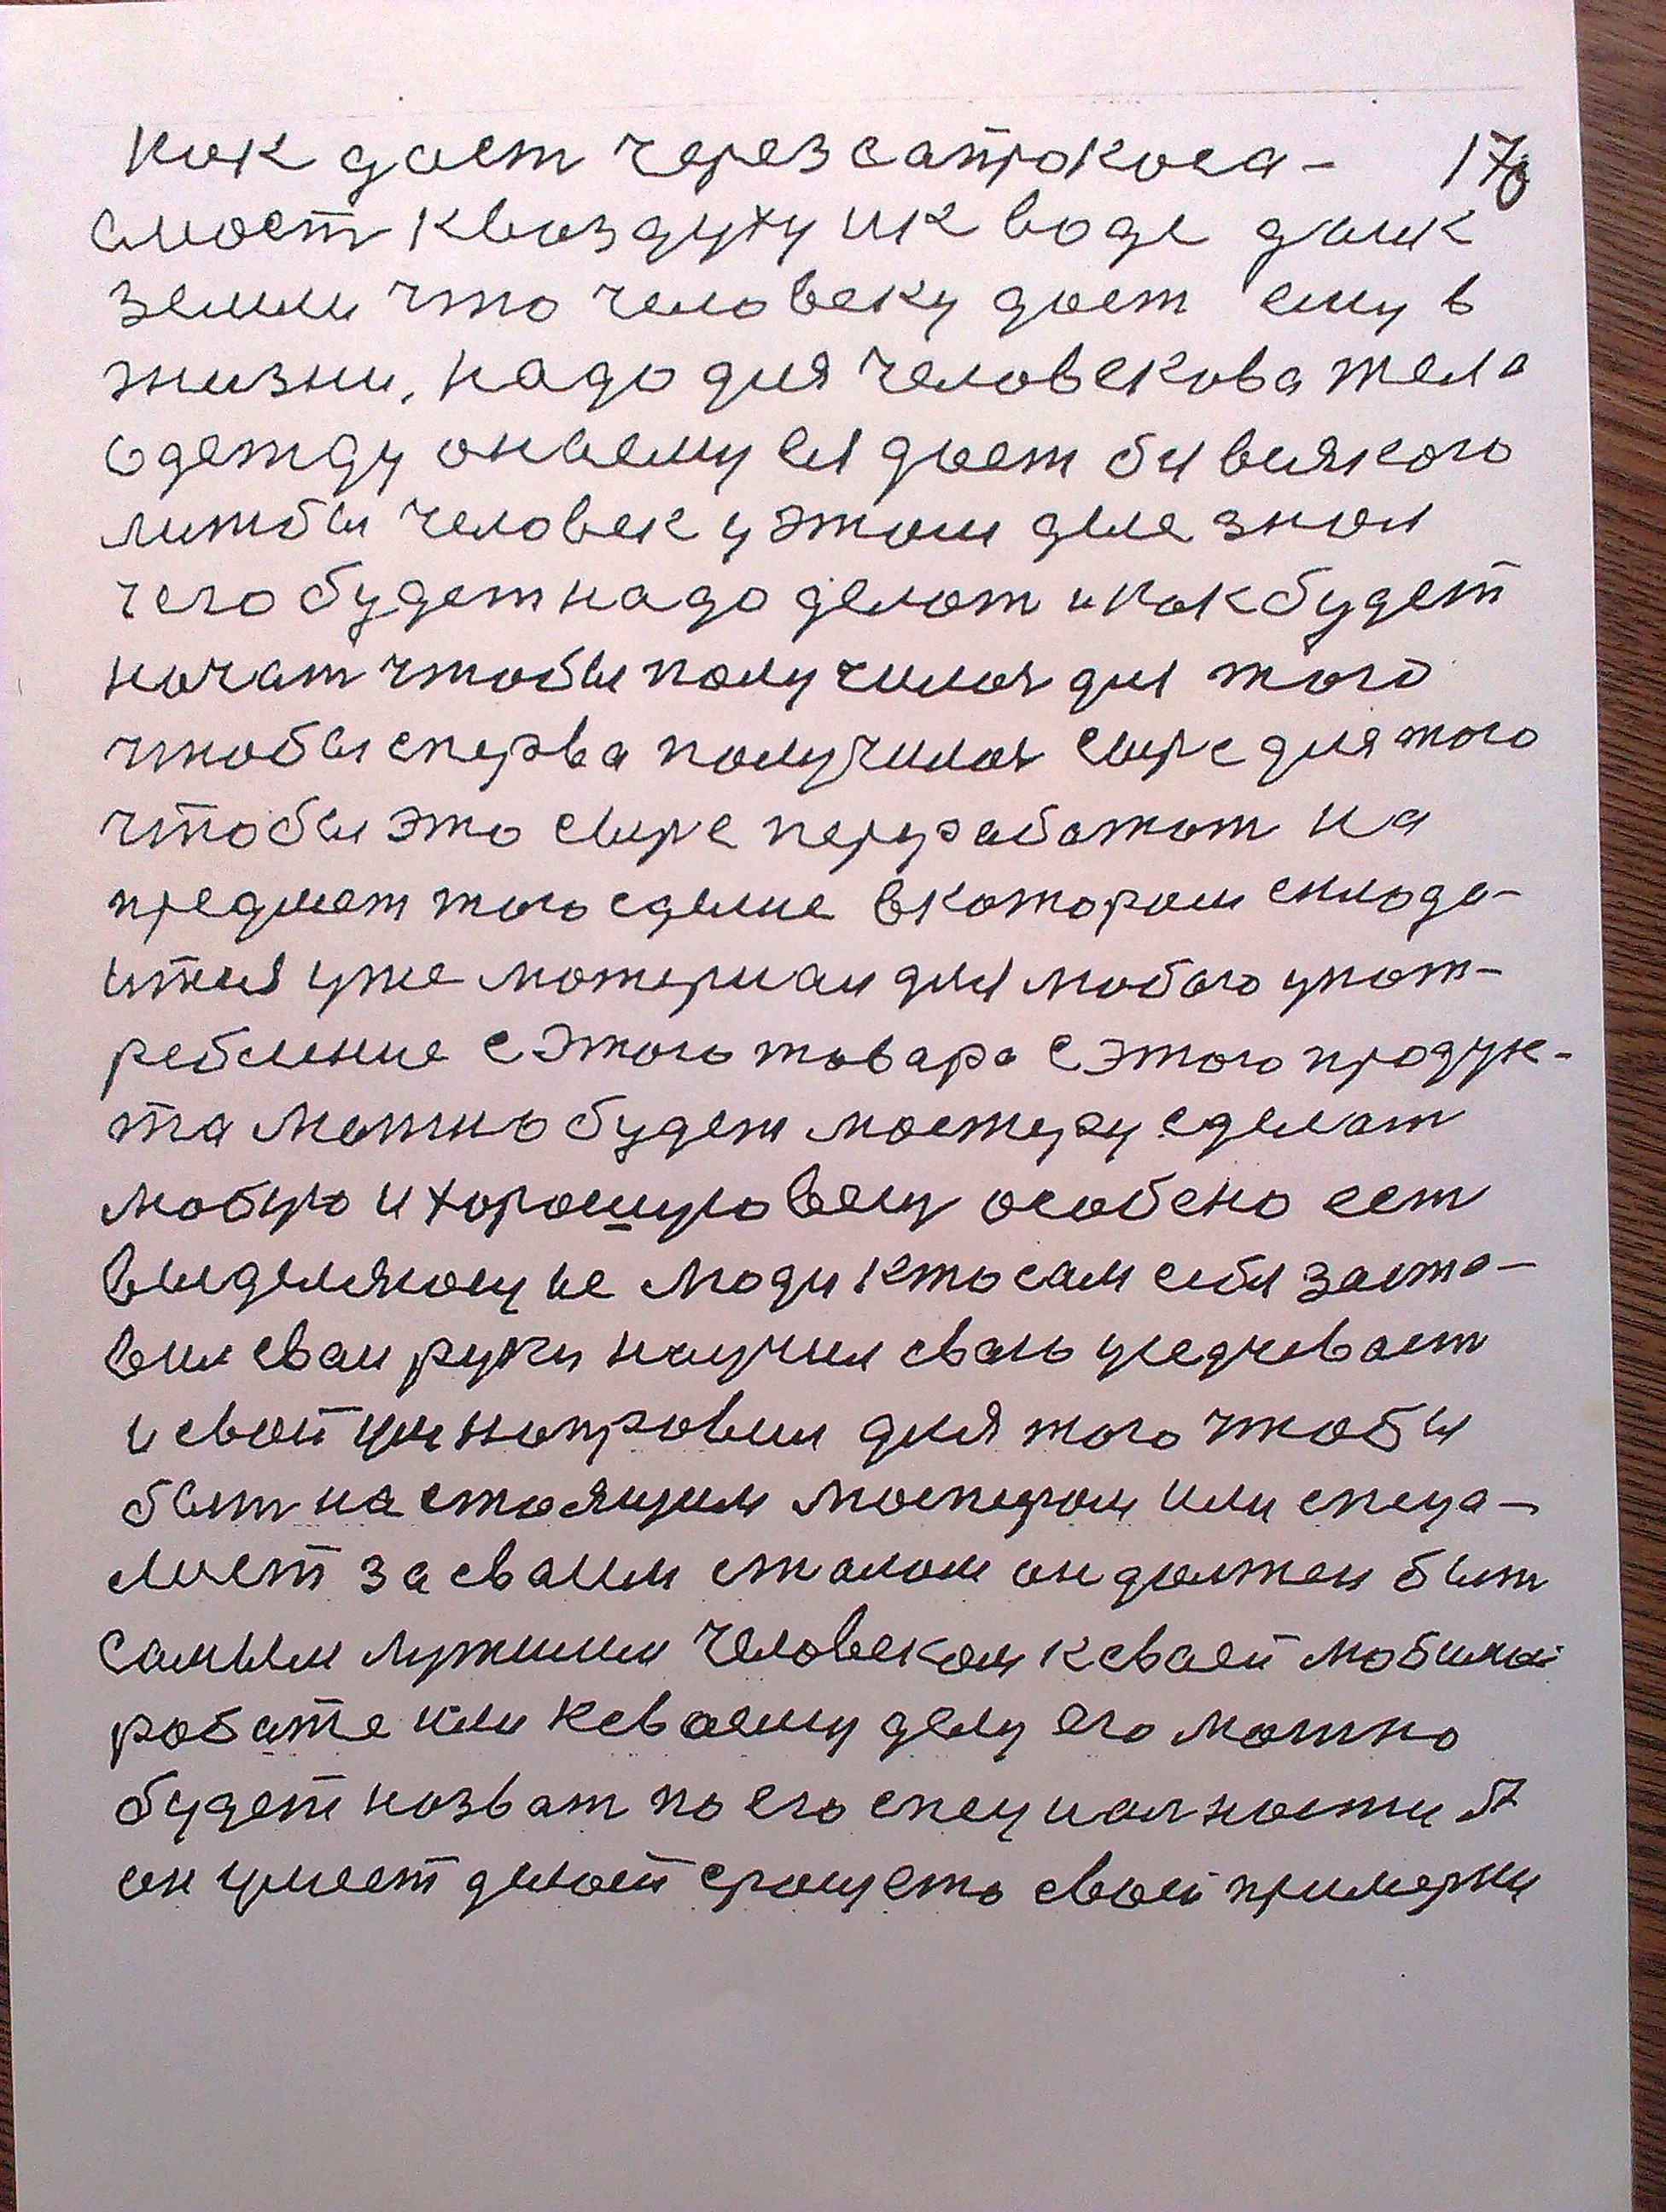 как дает через сапрокоса- 170
смост квоздуху ик воде даик
земли что человеку дает ему в
жизни, надо для человекова тела
одежду онаему ея дает бы всякого
литбы человек у этом деле знал
чего будет надо делат и как будет
начат чтобы получился для того
чтобы сперва получился сыре для того
чтобы это сыре перработат на
предмет того сделие вкотором склада-
ится уже материал для любого упот-
ребление с этого товара с этого продук-
та мотно будет мастеру сделат
любую и хорошую вещ особено ест
выделяющие люди кто сам себя заста-
вил сваи руки научил сваю
и свой ум направил для того чтобы
быт на стоящим мастером или спеца-
лист за сваим сталом он должен быт
самым лутшим человеком ксваей любимой
работе или ксваему делу его мотно
будет назват по его специалности
он умеет делат сваей примерки